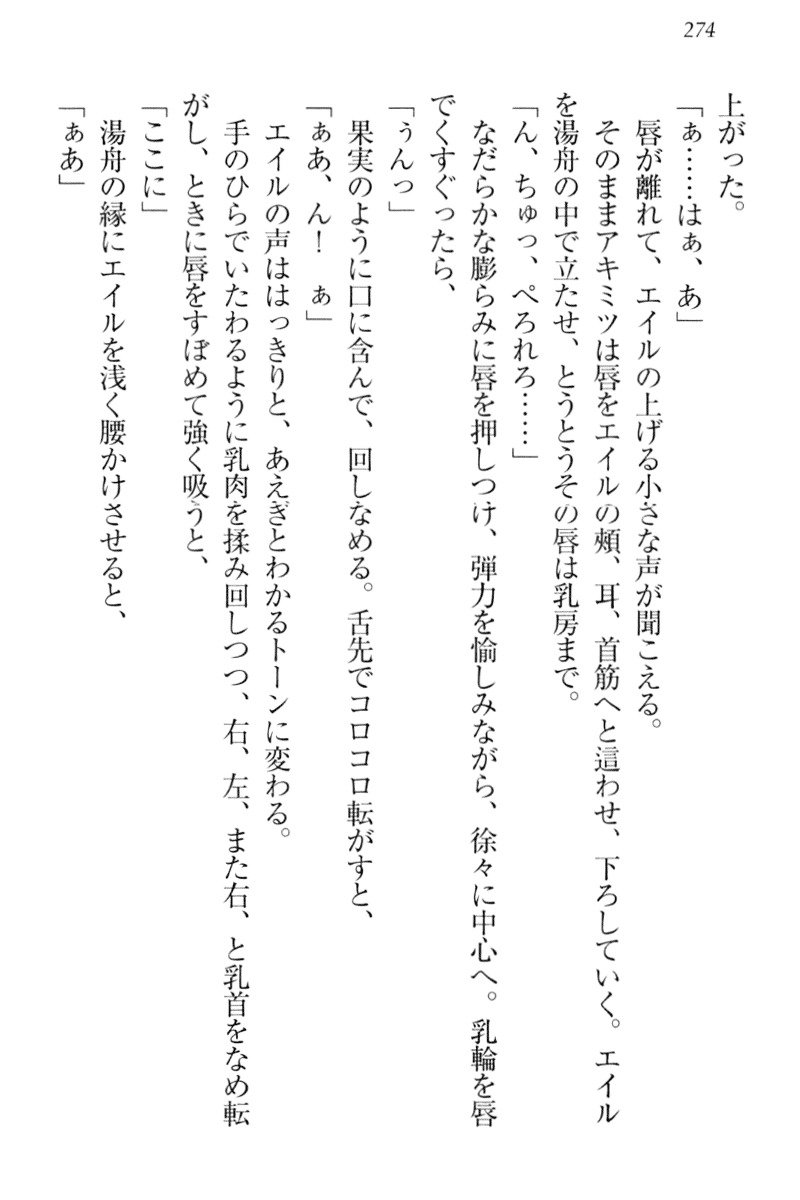 274
上がった。
「ぁ……はぁ、あ」
唇が離れて、エイルの上げる小さな声が聞こえる。
そのままアキミツは唇をエイルの頬、耳、首筋へと這わせ、下ろしていく。エイル
を湯舟の中で立たせ、とうとうその唇は乳房まで。
「ん、ちゅっ、ぺろれろ……」
なだらかな膨らみに唇を押しつけ、弾力を愉しみながら、徐々に中心へ。乳輪を唇
でくすぐったら、
「ぅんっ」
果実のように口に含んで、回しなめる。舌先でコロコロ転がすと、
「ぁあ、ん！　ぁ」
エイルの声ははっきりと、あえぎとわかるトーンに変わる。
手のひらでいたわるように乳肉を揉み回しつつ、右、左、また右、と乳首をなめ転
がし、ときに唇をすぼめて強く吸うと、
「ここに」
湯舟の縁にエイルを浅く腰かけさせると、
「ぁあ」